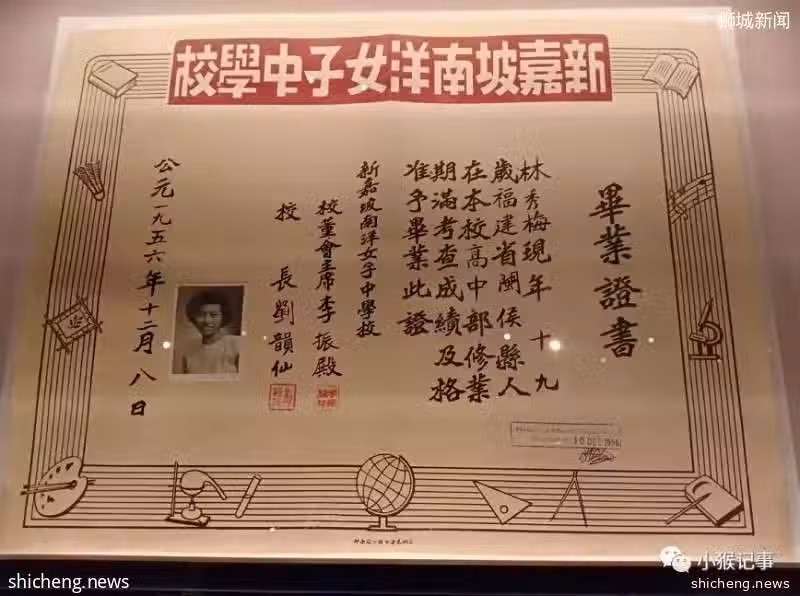 狮城新闻
新嘉坡南洋女子中學校
畢業證書
林秀梅現年十九
歲福建省閩侯縣人
在本校高中部修業
期滿考查成績及格
准予畢業此證
新嘉坡南洋女子中學校
校董會主席李振殿
校長劉韻仙
公元一九五六年十二月八日
10 DEC 1956
小猴记事
shicheng.news
shicheng.news